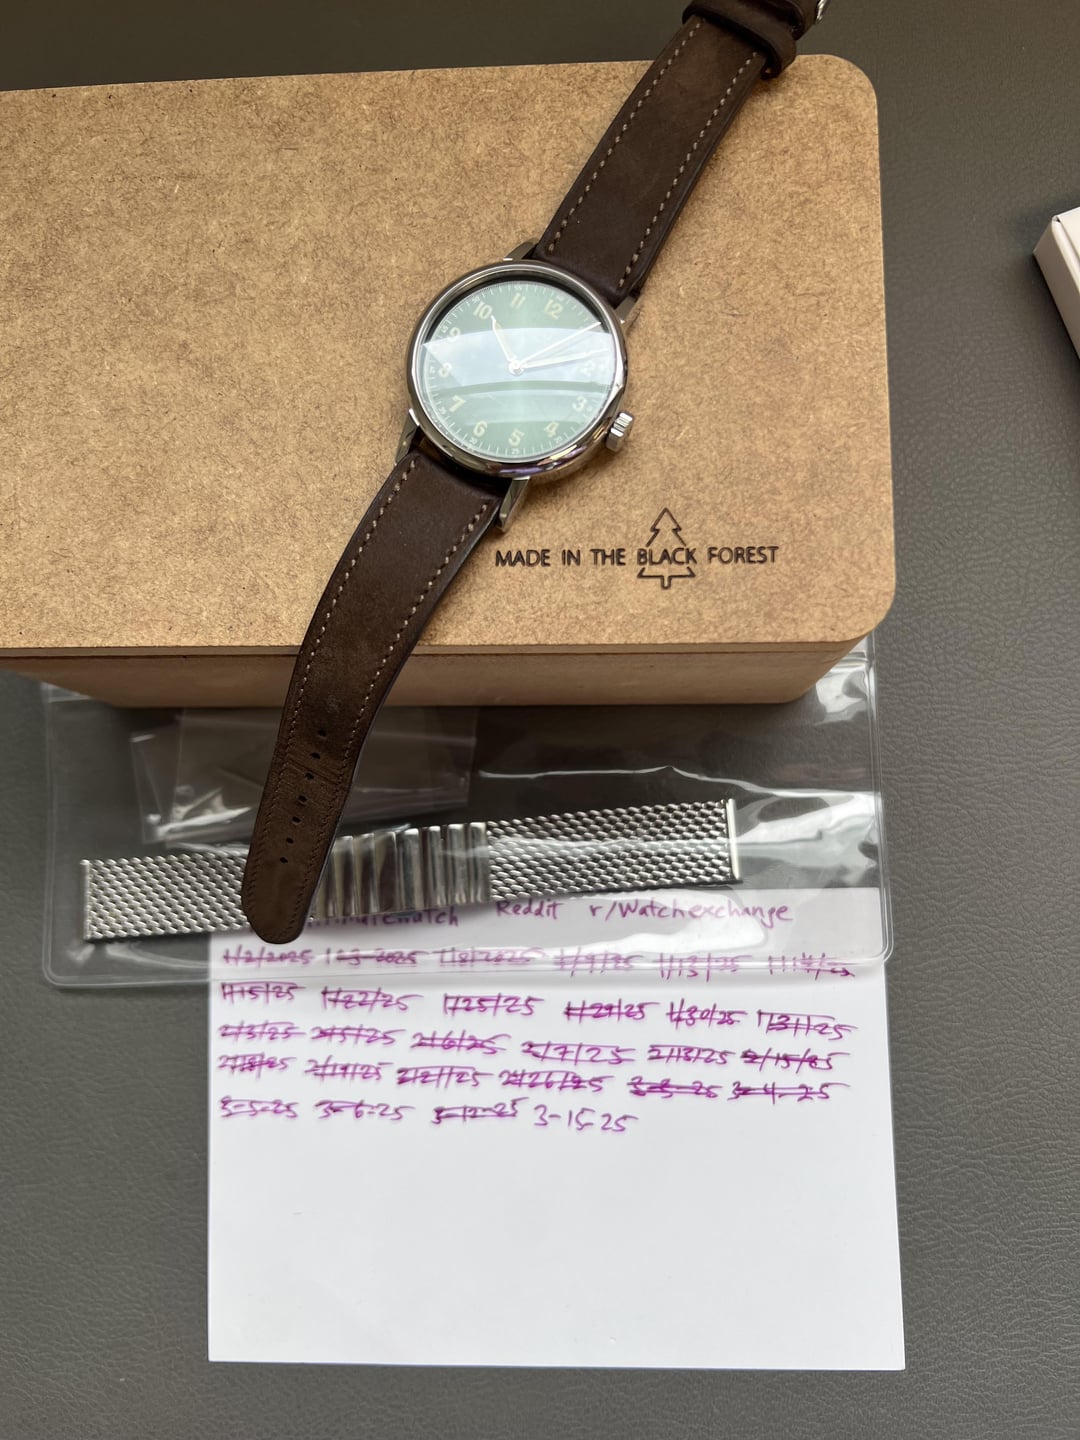 10 11 12
9
8 2
7 3
6 5 4
MADE IN THE BLACK FOREST
Reddit r/Watchexchange
1/2/2025 1-3-2025 1/8/2025 1/9/25 1/13/25
1/15/25 1/22/25 1/25/25 1/29/25 1/30/25 1/31/25
2/3/25 2/5/25 2/6/25 2/7/25 2/13/25 2/15/25
2/18/25 2/19/25 2/21/25 2/26/25 3-3-25 3-4-25
3-5-25 3-6-25 3-12-25 3-15-25